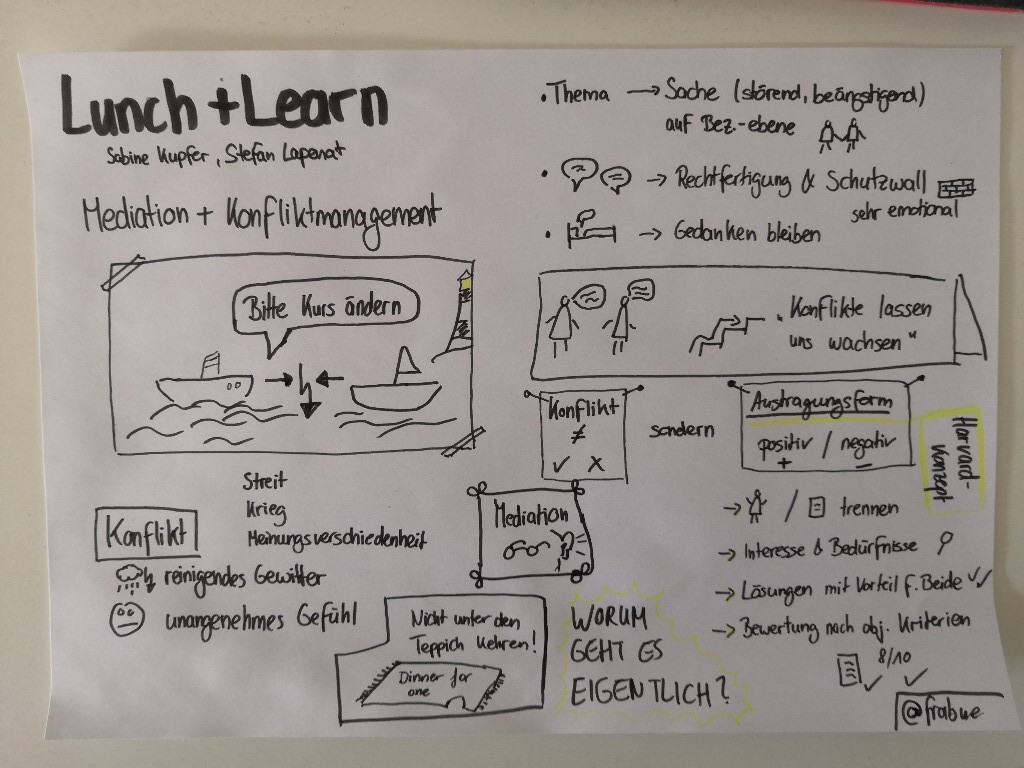 Lunch + Learn
Sabine Kupfer, Stefan Lapenat
Mediation + Konfliktmanagement
Bitte Kurs ändern
Streit
Krieg
Meinungsverschiedenheit
Konflikt
reinigendes Gewitter
unangenehmes Gefühl
Nicht unter den
Teppich kehren!
Dinner for
one
• Thema → Sache (störend, beängstigend)
auf Bez.-ebene
• → Rechtfertigung & Schutzwall
sehr emotional
• → Gedanken bleiben
„Konflikte lassen
uns wachsen"
Konflikt
≠
✓ x
sondern
Austragungsform
positiv / negativ
+ −
Harvard-
konzept
Mediation
→ / trennen
→ Interesse & Bedürfnisse
→ Lösungen mit Vorteil f. Beide ✓✓
→ Bewertung nach obj. Kriterien
8/10
✓ ✓
WORUM
GEHT ES
EIGENTLICH?
@frabue